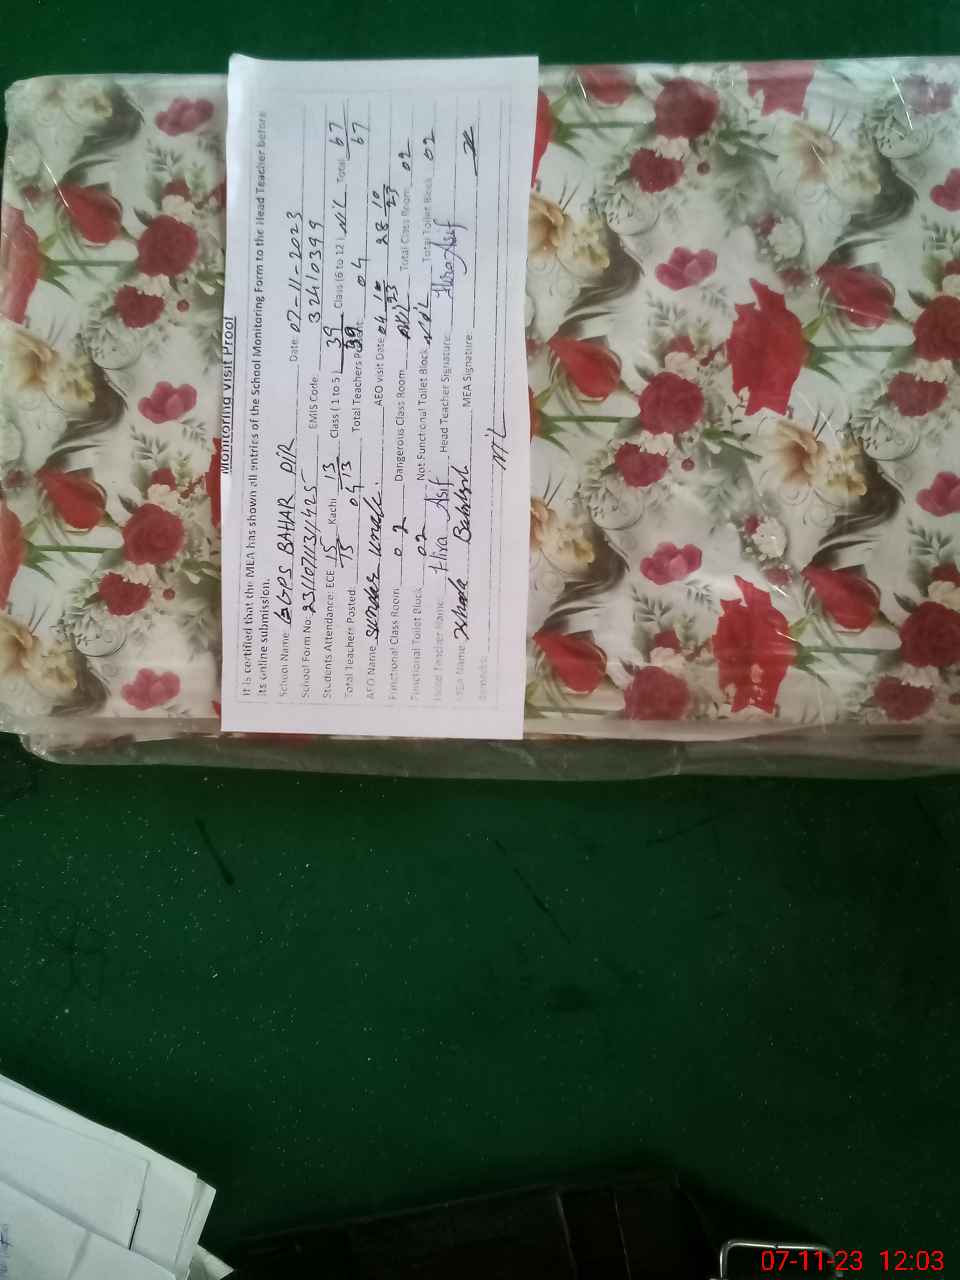 Monitoring Visit Proof
It is certified that the MEA has shown all entries of the School Monitoring Form to the Head Teacher before
its online submission.
School Name: GGPS BAHAR PIR Date: 07-11-2023
School Form No: EMIS Code: 32410399
Students Attendance: ECE 15/15 Kachi 13/13 Class (1 to 5) 39/39 Class (6 to 12) NiL Total 67/67
Total Teachers Posted: 04 Total Teachers Present: 04
AEO Name AEO visit Date 04 10/23 28 10/23
Functional Class Room 02 Dangerous Class Room NiL Total Class Room 02
Functional Toilet Block 02 Not Functional Toilet Block NiL Total Toilet Block 02
Head Teacher Name: Hira Asif Head Teacher Signature: Hira Asif
MEA Name MEA Signature:
Remarks: NiL
07-11-23 12:03